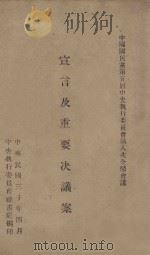 中國國民黨第五屆中央執行委員會第八次全體會議
宣言及重要決議案
中華民國三十年四月
中央執行委員會秘書處編印